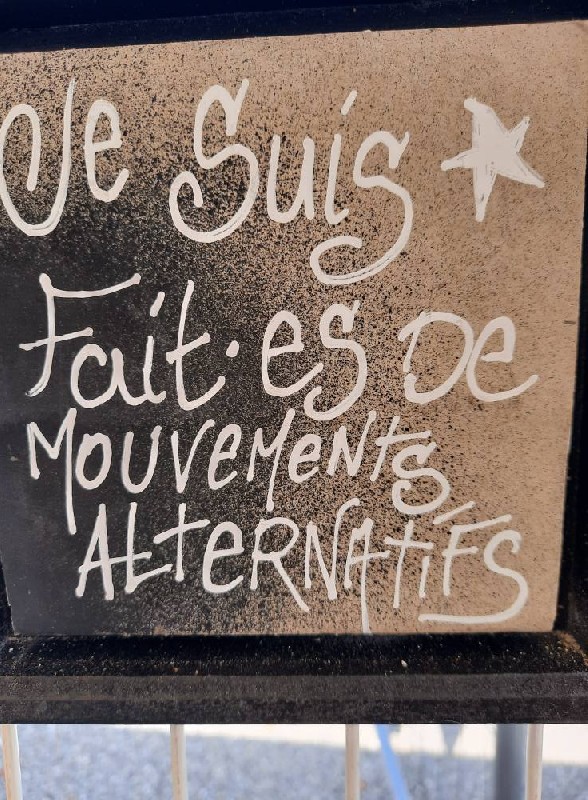 Je Suis
Fait·es De
Mouvements
Alternatifs